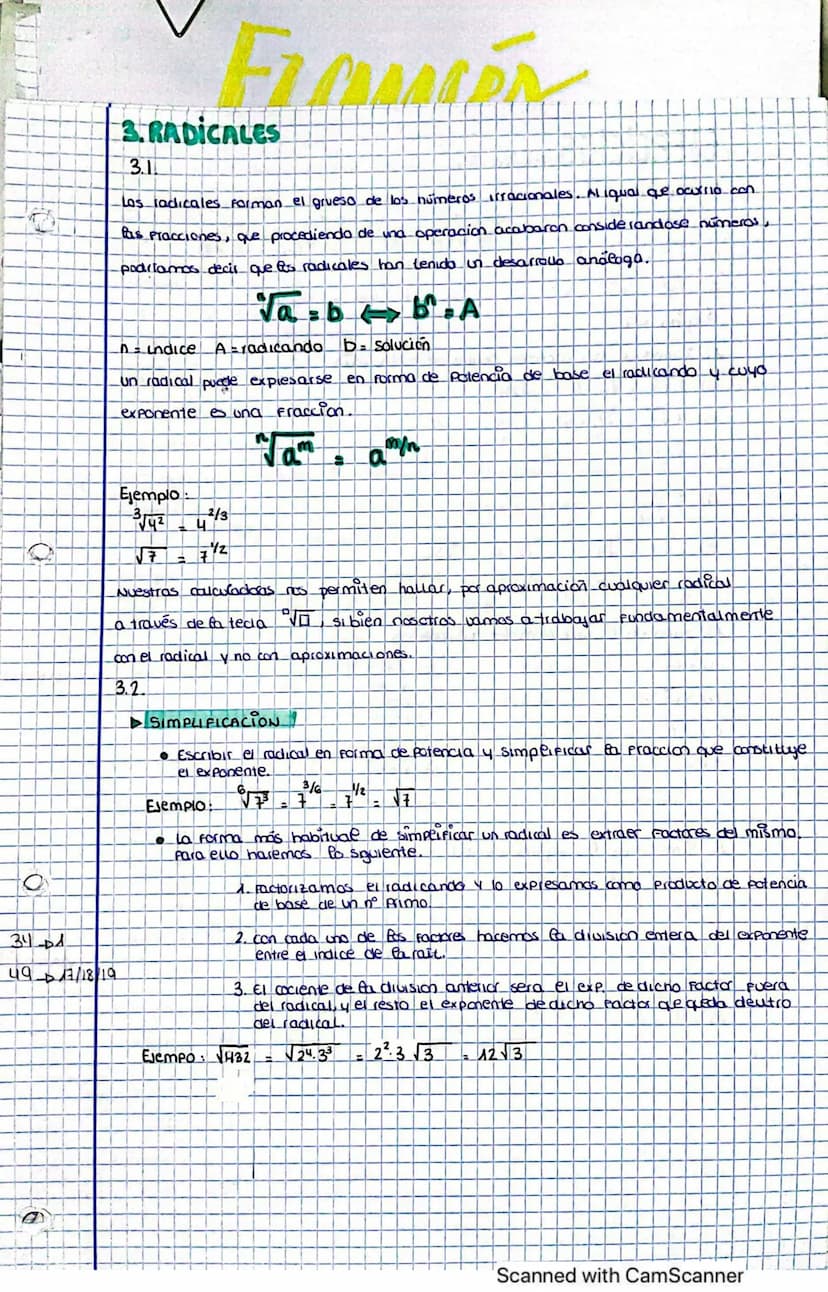 Examen
3. RADICALES
3.1.
Los radicales forman el grueso de los números irracionales. Al igual que ocurrió con
las fracciones, que procediendo de una operacion acabaron considerandose números,
podriamos decir que los radicales han tenido un desarrollo análogo.
ⁿ√a = b ⟺ bⁿ = A
n = índice A = radicando b = solución
un radical puede expresarse en forma de potencia de base el radicando y cuyo
exponente es una fraccion.
ⁿ√aᵐ = a^m/n
Ejemplo:
³√4² = 4^2/3
√7 = 7^1/2
Nuestras calculadoras nos permiten hallar, por aproximación cualquier radical
a través de la tecla ⁿ√□, si bien nosotros vamos a trabajar fundamentalmente
con el radical y no con aproximaciones.
3.2.
▷ SIMPLIFICACION
• Escribir el radical en forma de potencia y simplificar la fraccion que constituye
el exponente.
Ejemplo: ⁶√7³ = 7^3/6 = 7^1/2 = √7
• La forma más habitual de simplificar un radical es extraer factores del mismo.
Para ello haremos lo siguiente.
1. Factorizamos el radicando y lo expresamos como producto de potencia
de base de un nº primo
34 → 1
2. con cada uno de los factores hacemos la division entera del exponente
entre el indice de la raíz.
49 → 17/18/19
3. El cociente de la division anterior sera el exp. de dicho factor fuera
del radical, y el resto el exponente de dicho factor qe qeda dentro
del radical.
Ejempo: √432 = √2⁴·3³ = 2²·3 √3 = 12√3
Scanned with CamScanner